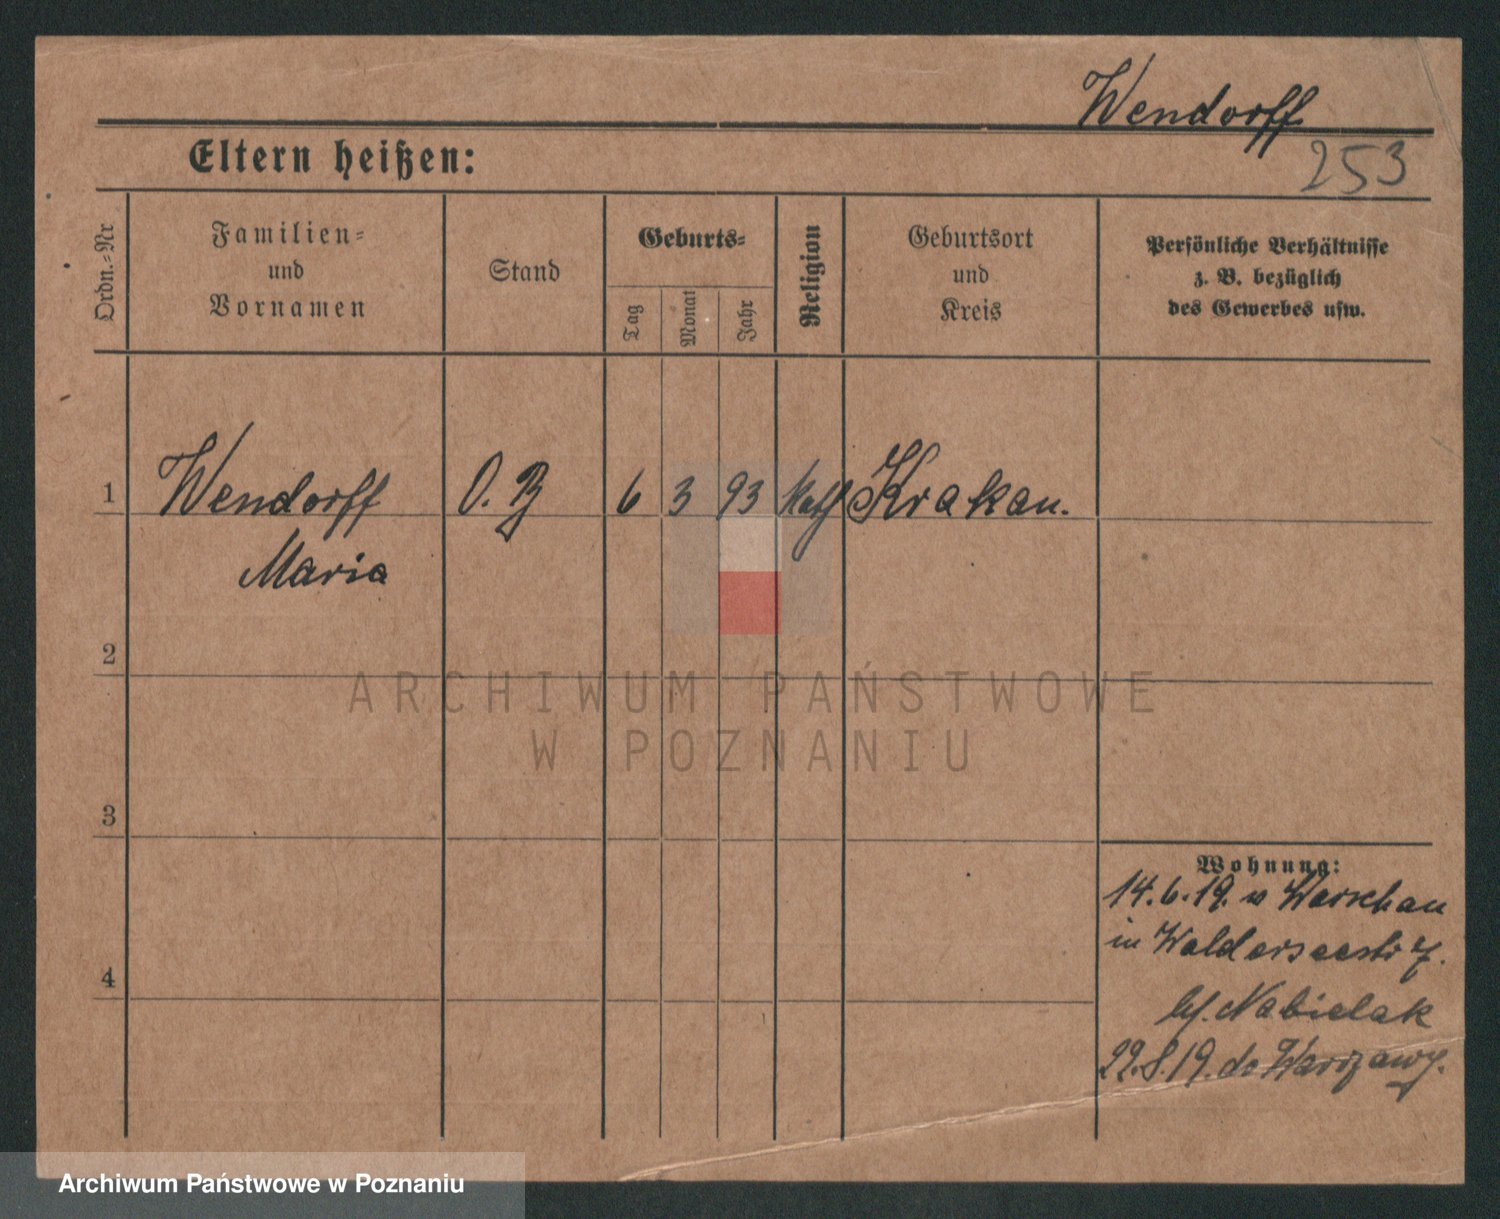 Wendorff
253
Eltern heißen:
Ordn.=Nr
Familien=
und
Vornamen
Stand
Geburts=
Tag
Monat
Jahr
Religion
Geburtsort
und
Kreis
Persönliche Verhältnisse
z. B. bezüglich
des Gewerbes usw.
1 Wendorff O. B 6 3 93 Kath Krakau.
Maria
2
3
4
Wohnung:
14.6.19. v Warschau
in Walderseestr 7.
bei Nabielak
22.8.19. do Warszawy.
ARCHIWUM PAŃSTWOWE
W POZNANIU
Archiwum Państwowe w Poznaniu